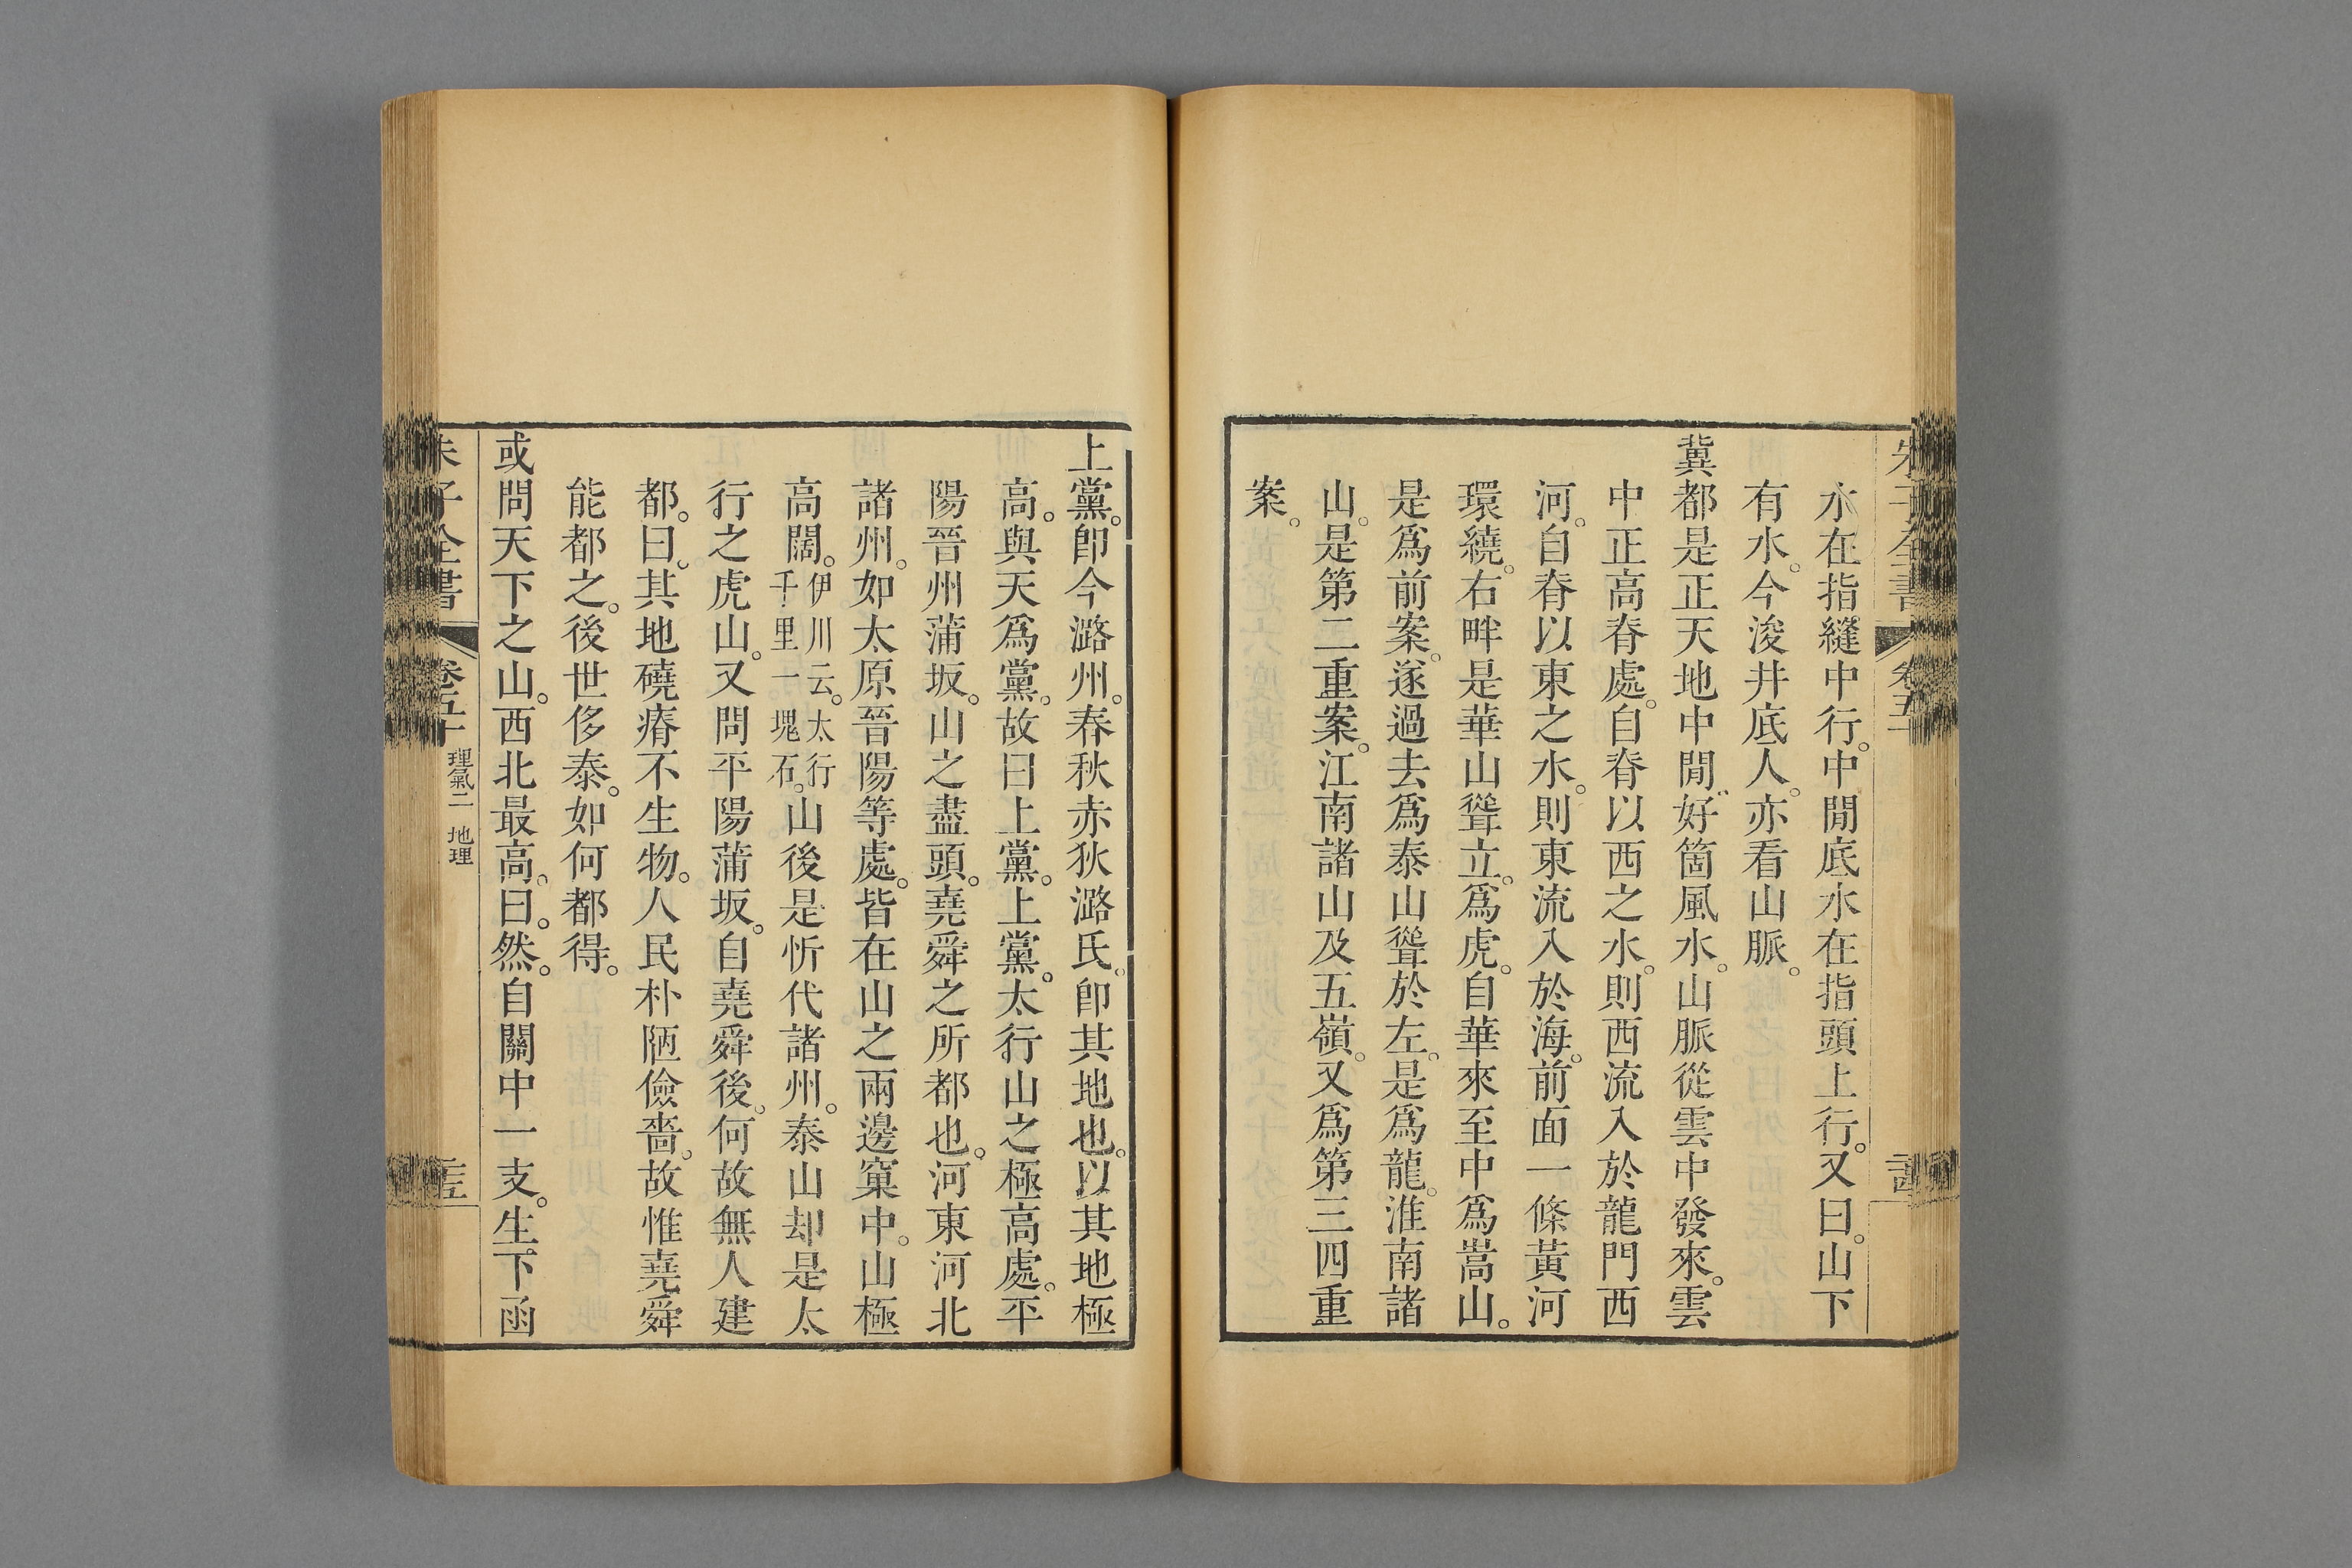 水在指縫中行。中閒底水在指頭上行。又曰。山下
有水。今浚井底人。亦看山脈。
冀都是正天地中閒。好箇風水。山脈從雲中發來。雲
中正高脊處。自脊以西之水。則西流入於龍門西
河。自脊以東之水。則東流入於海。前面一條黃河
環繞。右畔是華山聳立。爲虎。自華來至中爲嵩山。
是爲前案。遂過去爲泰山聳於左。是爲龍。淮南諸
山。是第二重案。江南諸山及五嶺。又爲第三四重
案。
上黨。卽今潞州。春秋赤狄潞氏。卽其地也。以其地極
高。與天爲黨。故曰上黨。上黨。太行山之極高處。平
陽晉州蒲坂。山之盡頭。堯舜之所都也。河東河北
諸州。如太原晉陽等處。皆在山之兩邊窠中。山極
高闊。伊川云。太行千里一塊石。山後是忻代諸州。泰山却是太
行之虎山。又問平陽蒲坂。自堯舜後。何故無人建
都。曰。其地磽瘠不生物。人民朴陋儉嗇。故惟堯舜
能都之。後世侈泰。如何都得。
或問天下之山。西北最高。曰。然。自關中一支。生下函
朱子全書
卷五十
理氣二 地理